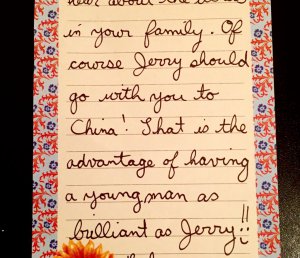 hear about the
in your family. Of
course Jerry should
go with you to
China! That is the
advantage of having
a young man as
brilliant as Jerry!!